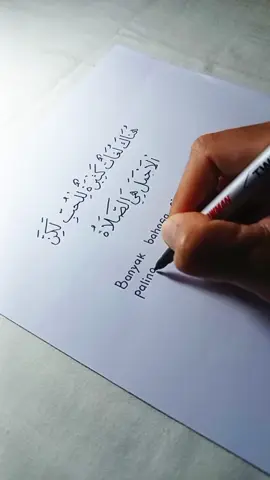 هُنَاكَ لُغَاتٌ كَثِيْرَةٌ لِلْحُبِّ لَكِنْ
الاَجْمَلَ هِيَ الصَّلَاةُ
Banyak bahasa
paling